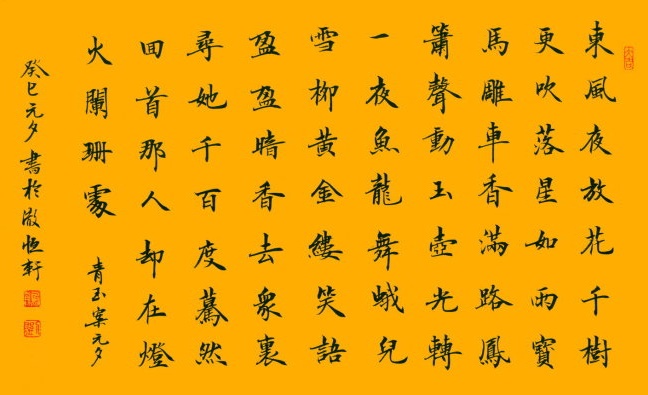 東風夜放花千樹
更吹落星如雨寶
馬雕車香滿路鳳
簫聲動玉壺光轉
一夜魚龍舞蛾兒
雪柳黃金縷笑語
盈盈暗香去衆裏
尋她千百度驀然
回首那人却在燈
火闌珊處
青玉案元夕
癸巳元夕書於恒軒